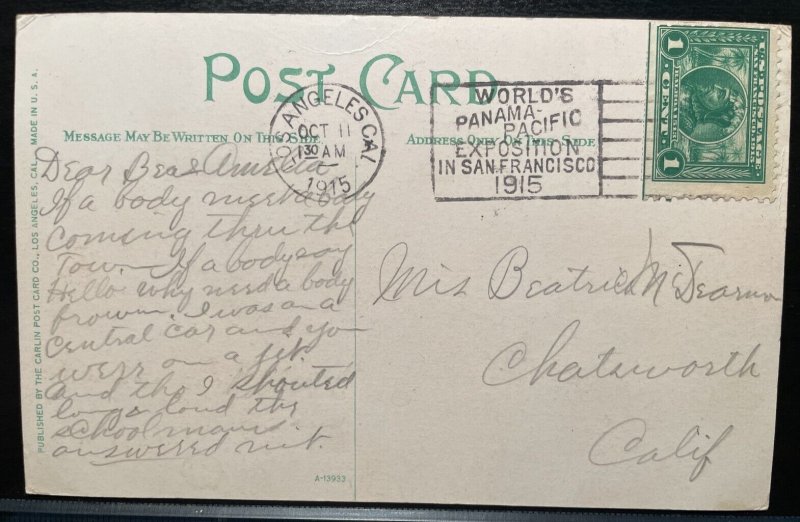 POST CARD
MESSAGE MAY BE WRITTEN ON THIS SIDE
ADDRESS ONLY ON THIS SIDE
LOS ANGELES, CAL
OCT 11
130 AM
1915
WORLD'S
PANAMA-
PACIFIC
EXPOSITION
IN SAN FRANCISCO
1915
U.S. POSTAGE
1 CENT 1
Dear Bea
If a body meet a body
coming thru the
Town. If a body say
Hello why need a body
frown. I was on a
Central car and you
were on a
and tho I shouted
long & loud the
school mams
answered nit.
Miss Beatrice McDearmon
Chatsworth
Calif
PUBLISHED BY THE CARLIN POST CARD CO., LOS ANGELES, CAL. MADE IN U. S. A.
A-13933